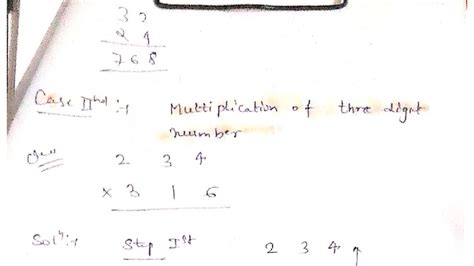 3 2
2 4
7 6 8
Case IInd :- Multiplication of thre digit
number
2 3 4
× 3 1 6
Solⁿ:- Step Ist 2 3 4 ↑